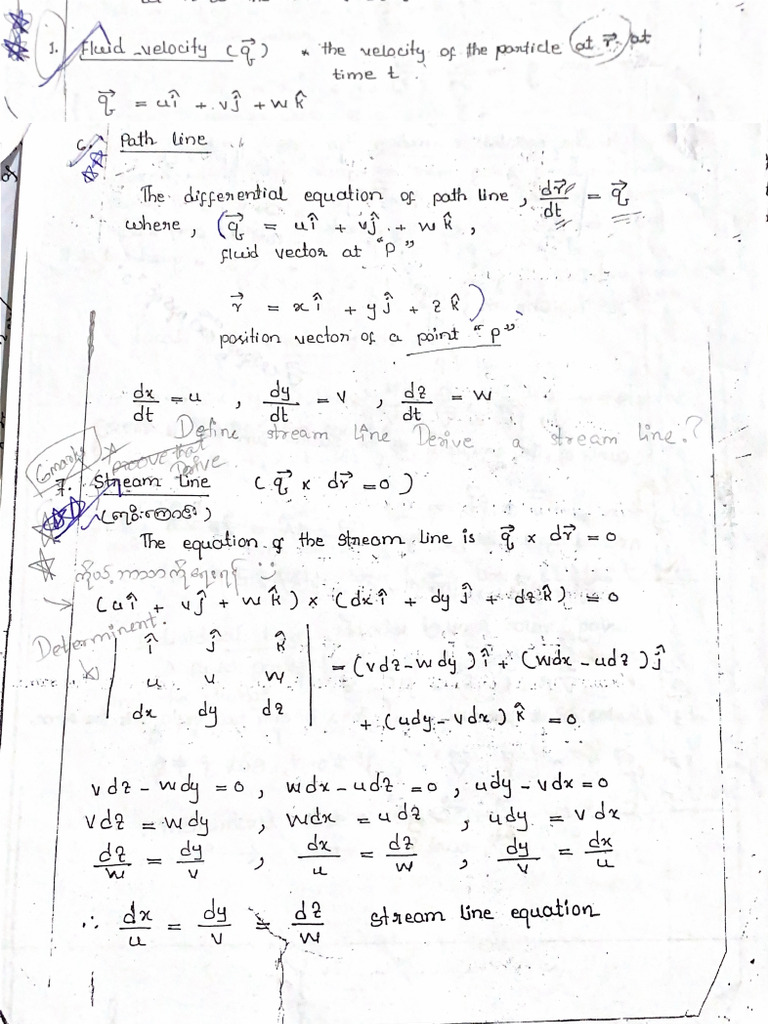 1. Fluid velocity (q⃗) * the velocity of the particle at r⃗ at
time t.
q⃗ = uî + vĵ + wk̂
6. Path line
The differential equation of path line, dr⃗/dt = q⃗
where, (q⃗ = uî + vĵ + wk̂,
fluid vector at "P"
r⃗ = xî + yĵ + zk̂)
position vector of a point "P"
dx/dt = u , dy/dt = v , dz/dt = w
Define stream line Derive a stream line?
6marks
prove that
Derive
7. Stream Line (q⃗ × dr⃗ = 0)
The equation of the stream line is q⃗ × dr⃗ = 0
(uî + vĵ + wk̂) × (dxî + dyĵ + dzk̂) = 0
Determinent
| î ĵ k̂ |
| u u w | = (vdz - wdy)î + (wdx - udz)ĵ
| dx dy dz | + (udy - vdx)k̂ = 0
vdz - wdy = 0, wdx - udz = 0, udy - vdx = 0
vdz = wdy , wdx = udz , udy = vdx
dz/w = dy/v , dx/u = dz/w , dy/v = dx/u
∴ dx/u = dy/v = dz/w stream line equation